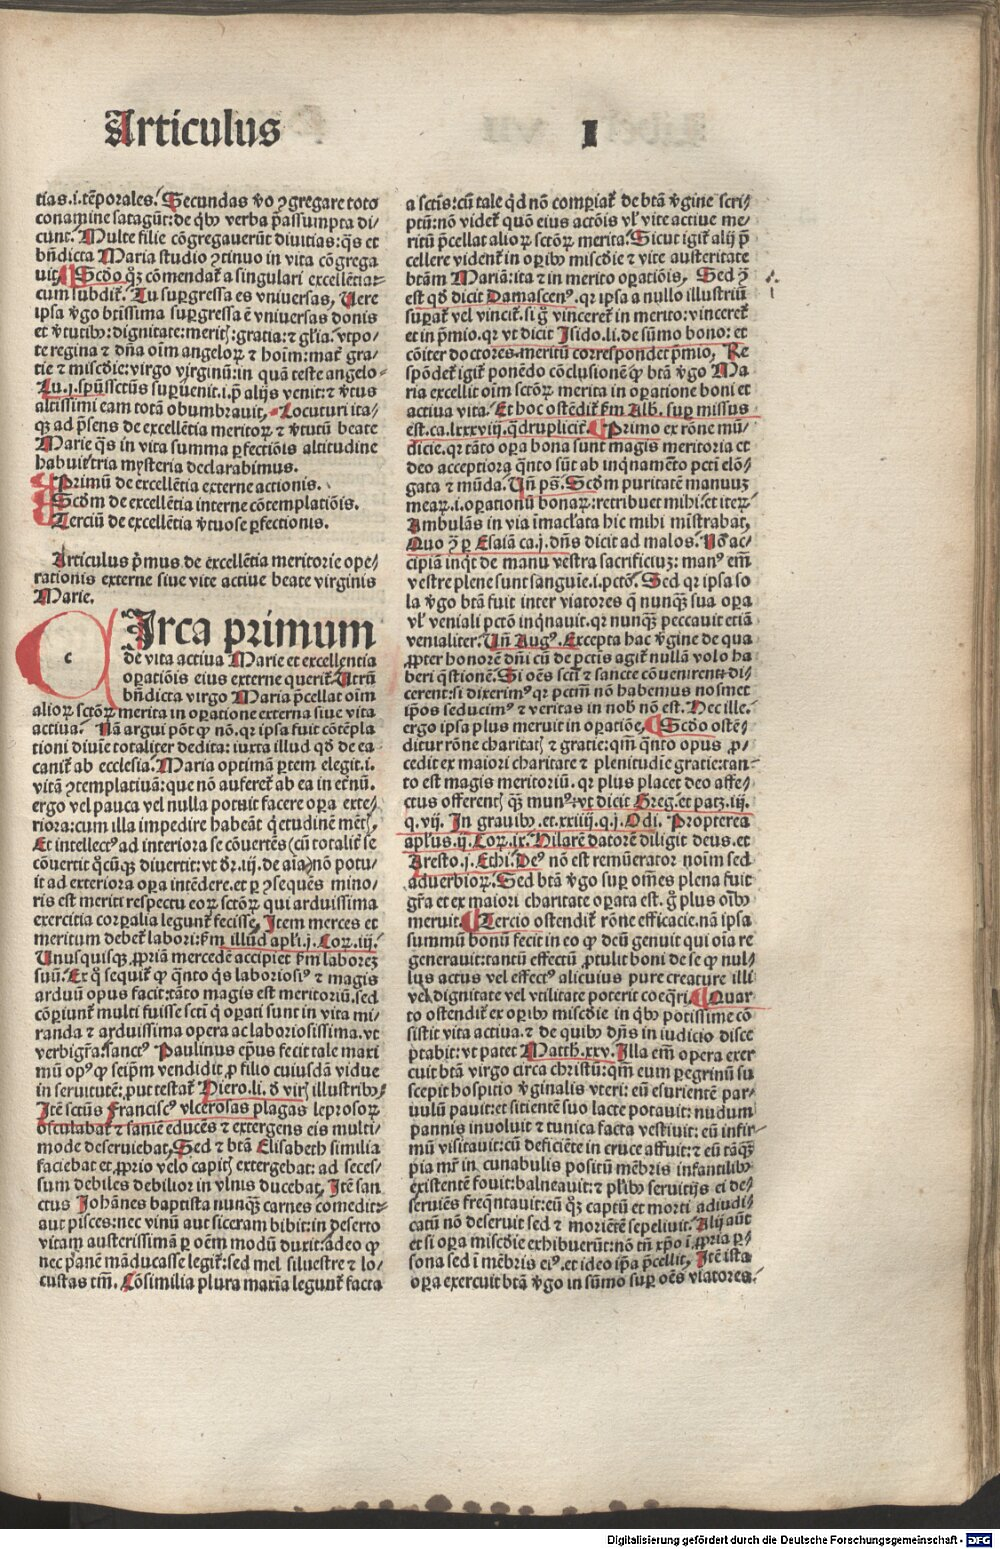 Articulus I
tias.i.tēporales. Secundas v̄o ꝯgregare toto
conamine satagūt: de qͥbꝰ verba p̄assumpta di-
cunt. Multe filie cōgregauerūt diuitias: qͣs et
bn̄dicta Maria studio ꝯtinuo in vita cōgrega
uit. Scd̓o qͣꝫ cōmendat̄ a singulari excellētia:
cum subdit̄. Tu supgressa es vniuersas, Uere
ipsa v̄go btissima supgressa ē vniuersas donis
et v̄tutibꝰ: dignitate: meritꝭ: gratia: ⁊ gl̄ia. vtpo-
te regina ⁊ dn̄a oīm angeloꝝ ⁊ hoīm: mat̄ gra-
tie ⁊ misc̄die: virgo virginū: in quā teste angelo
Lu.j. spūssctūs supuenit. i. p̄ alijs venit: ⁊ v̄tus
altissimi eam totā obumbrauit, Locuturi ita/
qꝫ ad p̄sens de excellētia meritoꝝ ⁊ v̄tutū beate
Marie qͣs in vita summa pfectiōis altitudine
habuit tria mysteria declarabimus.
Primū de excellētia externe actionis.
Scd̓m de excellētia interne cōtemplatiōis.
Terciū de excellētia v̄tuose pfectionis.
Articulus p̄mus de excellētia meritorie ope/
rationis externe siue vite actiue beate virginis
Marie.
c Irca primum
de vita actiua Marie et excellentia
opatiōis eius externe querit̄. Utrū
bn̄dicta virgo Maria p̄cellat oīm
alioꝝ sctōꝝ merita in opatione externa siue vita
actiua. Nā argui pōt ꝙ nō. qꝛ ipsa fuit cōtēpla
tioni diuīe totaliter dedita: iuxta illud qd̓ de ea
canit̄ ab ecclesia. Maria optimā ptem elegit. i.
vitā ꝯtemplatiuā: que nō auferet̄ ab ea in etn̄ū.
ergo vel pauca vel nulla potuit facere opa exte/
riora: cum illa impedire habeāt qͥetudinē mētꝭ.
Et intellectꝰ ad interiora se cōuertēs (cū totalit̄ se
cōuertit qͥcūqꝫ diuertit: vt dr̄.iij. de aīa) nō potu-
it ad exteriora opa intēdere. et p ꝯsequēs mino/
ris est meriti respectu eoꝝ sctōꝝ qui arduissima
exercitia corpalia legunt̄ fecisse, Item merces et
meritum debet̄ labori: fm illūd apl̄i.j. Coꝝ.iij.
Unusquisqꝫ ꝓpriā mercedē accipiet fm laboreꝫ
suū. Ex qͦ sequit̄ ꝙ qͣnto qͥs laboriosiꝰ ⁊ magis
arduū opus facit: tāto magis est meritoriū. sed
cōpiunt̄ multi fuisse scti qͥ opati sunt in vita mi-
randa ⁊ arduissima opera ac laboriosissima. vt
verbigr̄a. sanctꝰ Paulinus ep̄us fecit tale maxi
mū opꝰ ꝙ seip̄m vendidit ꝓ filio cuiusdā vidue
in seruitutē: put testat̄ Hiero. li. d̓ virꝭ illustribꝰ/
Itē sctūs Franciscꝰ vlcerosas plagas leprosoꝝ
osculabat̄ ⁊ saniē educēs ⁊ extergens eis multi-
mode deseruiebat, Sed ⁊ btā Elisabeth similia
faciebat et ꝓprio velo capitꝭ extergebat: ad seces/
sum debiles debilior in vlnis ducebat, Itē san
ctus Johānes baptista nunqͣꝫ carnes comedit:
aut pisces: nec vinū aut siceram bibit: in deserto
vitam austerissimā p oēm modū duxit: adeo ꝙ
nec panē māducasse legit̄: sed mel siluestre ⁊ lo/
custas tm̄. Cōsimilia plura maxīa legunt̄ facta
a sctis: cū tale qͥd nō compiat̄ de btā v̄gine scri/
ptū: nō videt̄ quō eius actōis vl̓ vite actiue me/
ritū p̄cellat alioꝝ sctōꝝ merita. Sicut igit̄ alij p̄
cellere vident̄ in opibꝰ misc̄die ⁊ vite austeritate
btām Mariā: ita ⁊ in merito opatiōis, Sed ꝯͣ
est qd̓ dicit Damascenꝰ. qꝛ ipsa a nullo illustriū
supat̄ vel vincit̄. si g̊ vinceret̄ in merito: vinceret̄
et in p̄mio. qꝛ vt dicit Isido. li. de sūmo bono: et
cōiter doctores. meritū correspondet p̄mio, Re
spōdet̄ igit̄ ponēdo cōclusionē ꝙ btā v̄go Ma
ria excellit oīm sctōꝝ merita in opatione boni et
actiua vita. Et hoc ostēdit̄ fm Alb. sup missus
est. ca. lxxxviij. qͣdruplicit̄. Primo ex rōne mū/
dicie. qꝛ tāto opa bona sunt magis meritoria et
deo acceptiora qͣnto sūt ab inqͥnamēto pcti elō/
gata ⁊ mūda. Un̄ ps̄. Scd̓m puritatē manuuꝫ
meaꝝ. i. opationū bonaꝝ: retribuet mihi. et iteꝝ
Ambulās in via īmacl̄ata hic mihi mīstrabat,
Quo ꝯͣ p Esaiā ca.j. dn̄s dicit ad malos. Nō ac/
cipiā inqͥt de manu vestra sacrificiuꝫ: manꝰ em̄
vestre plene sunt sanguīe. i. pctō. Sed qꝛ ipsa so
la v̄go btā fuit inter viatores q̄ nunqͣꝫ sua opa
vl̓ veniali pctō inqͥnauit. qꝛ nunqͣꝫ peccauit etiā
venialiter. Un̄ Augꝰ. Excepta hac v̄gine de qua
ꝓpter honorē dn̄i cū de pctis agit̄ nullā volo ha
beri qͣstionē. Si oēs scti ⁊ sancte cōuenirent: di-
cerent: si dixerimꝰ qꝛ pctm̄ nō habemus nosmet
ip̄os seducimꝰ ⁊ veritas in nob̄ nō est. Hec ille.
ergo ipsa plus meruit in opatiōe, Scd̓o ostē/
ditur rōne charitatꝭ ⁊ gratie: qm̄ qͣnto opus ꝓ-
cedit ex maiori charitate ⁊ plenitudīe gratie: tan-
to est magis meritoriū. qꝛ plus placet deo affe/
ctus offerentꝭ qͣꝫ munꝰ: vt dicit Greg. et patꝫ.iij.
q. vij. In grauibꝰ. et. xxiiij. q. j. Odi. Propterea
apl̄us. ij. Coꝝ. ix. Hilarē datorē diligit deus. et
Aresto. j. Ethi. Deꝰ nō est remūerator noīm sed
aduerbioꝝ. Sed btā v̄go sup om̄es plena fuit
gr̄a et ex maiori charitate opata est. g̊ plus oībꝰ
meruit. Tercio ostendit̄ rōne efficacie. nā ipsa
summū bonū fecit in eo ꝙ deū genuit qui oīa re
generauit: tantū effectū ꝓtulit boni de se ꝙ nul-
lus actus vel effectꝰ alicuius pure creature illi
vel dignitate vel vtilitate poterit coeqͣri. Quar
to ostendit̄ ex opibꝰ misc̄die in qͥbꝰ potissime cō
sistit vita actiua. ⁊ de quibꝰ dn̄s in iudicio disce
ptabit: vt patet Matth. xxv. Illa em̄ opera exer
cuit btā virgo circa christū: qm̄ eum pegrinū su
scepit hospitio v̄ginalis vteri: eū esurientē par-
uulū pauit: et sitientē suo lacte potauit: nudum
pannis inuoluit ⁊ tunica facta vestiuit: eū infir-
mū visitauit: eū deficiēte in cruce affuit: ⁊ eū tāqͣꝫ
pia mr̄ in cunabulis positū mēbris infantilibꝰ
existentē fouit: balneauit: ⁊ pl̄ibꝰ seruitijs ei de/
seruiēs freqͥntauit: eū qͦꝫ captū et morti adiudi-
catū nō deseruit sed ⁊ moriētē sepeliuit. Alij aūt
et si opa misc̄die exhibuerūt: nō tn̄ xp̄o ī ꝓpria p/
sona sed ī mēbris eiꝰ. et ideo ip̄a p̄cellit, Itē ista
opa exercuit btā v̄go in sūmo sup oēs viatores.
Digitalisierung gefördert durch die Deutsche Forschungsgemeinschaft - DFG